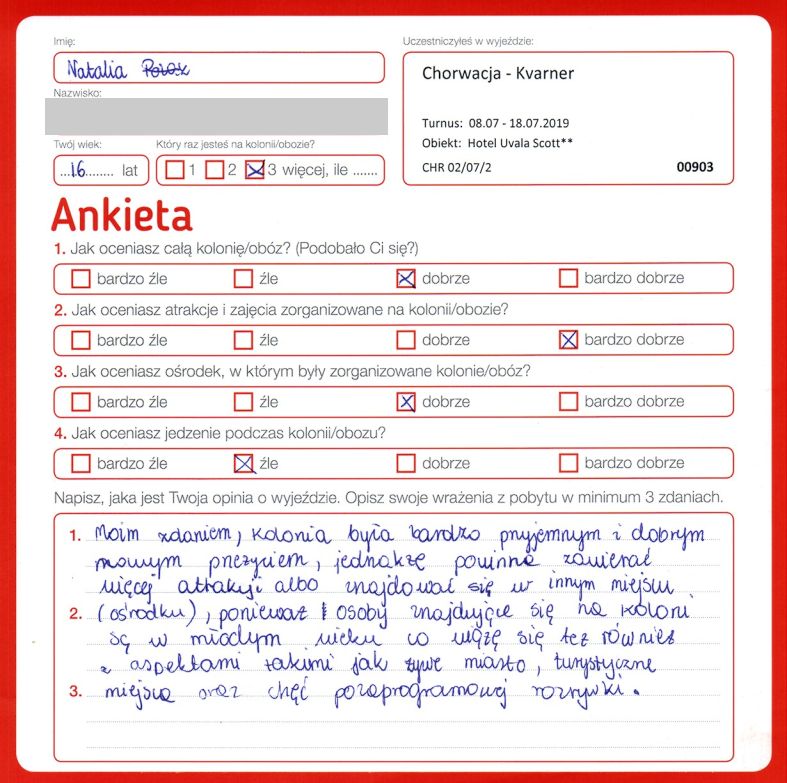 Imię:
Natalia
Nazwisko:
Twój wiek:
...16........ lat
Który raz jesteś na kolonii/obozie?
1 2 3 więcej, ile .......
Uczestniczyłeś w wyjeździe:
Chorwacja - Kvarner
Turnus: 08.07 - 18.07.2019
Obiekt: Hotel Uvala Scott**
CHR 02/07/2 00903
Ankieta
1. Jak oceniasz całą kolonię/obóz? (Podobało Ci się?)
bardzo źle źle dobrze bardzo dobrze
2. Jak oceniasz atrakcje i zajęcia zorganizowane na kolonii/obozie?
bardzo źle źle dobrze bardzo dobrze
3. Jak oceniasz ośrodek, w którym były zorganizowane kolonie/obóz?
bardzo źle źle dobrze bardzo dobrze
4. Jak oceniasz jedzenie podczas kolonii/obozu?
bardzo źle źle dobrze bardzo dobrze
Napisz, jaka jest Twoja opinia o wyjeździe. Opisz swoje wrażenia z pobytu w minimum 3 zdaniach.
1. Moim zdaniem, kolonia była bardzo przyjemnym i dobrym
nowym przeżyciem, jednakże powinna zawierać
więcej atrakcji albo znajdować się w innym miejscu
2. (ośrodku), ponieważ osoby znajdujące się na koloni
są w młodym wieku co wiąże się też również
z aspektami takimi jak żywe miasto, turystyczne
3. miejsca oraz chęć pozaprogramowej rozrywki.